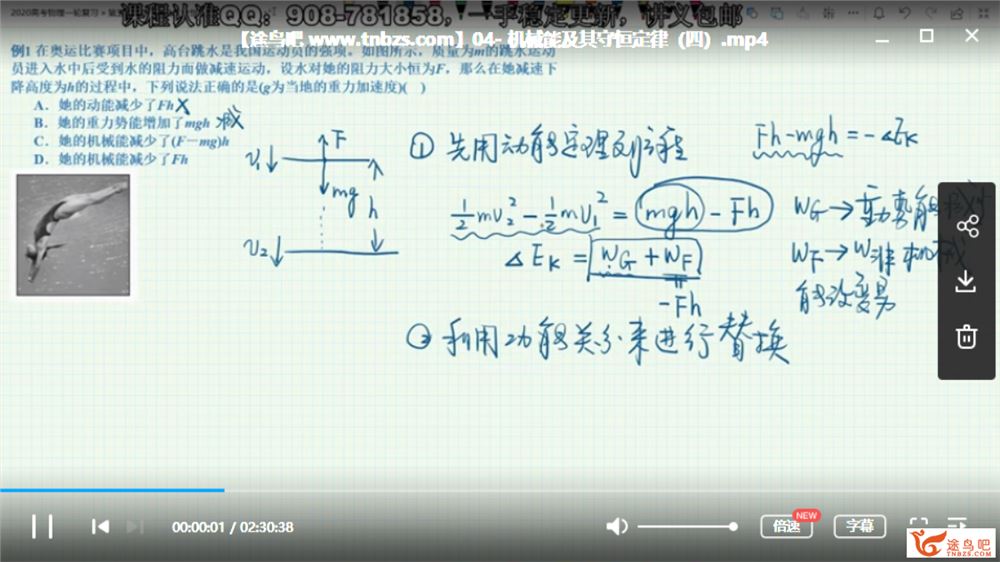 2020高考物理一轮复习
课程认准QQ：908-781858，一手稳定更新，讲义包邮
【途鸟吧 www.tnbzs.com】04- 机械能及其守恒定律（四）.mp4
例1 在奥运比赛项目中，高台跳水是我国运动员的强项。如图所示，质量为m的跳水运动
员进入水中后受到水的阻力而做减速运动，设水对她的阻力大小恒为F，那么在她减速下
降高度为h的过程中，下列说法正确的是(g为当地的重力加速度)( )
A．她的动能减少了Fh X
B．她的重力势能增加了mgh 减
C．她的机械能减少了(F－mg)h
D．她的机械能减少了Fh
F
V₁
mg
h
V₂
① 先用动能定理列方程
½mV₂² - ½mV₁² = mgh - Fh
△EK = WG + WF
-Fh
② 利用功能关系来进行替换
Fh-mgh = -△EK
WG →重力势能
WF → W非 机械
能改变
00:00:01 / 02:30:38
倍速
NEW
字幕
途鸟吧
TNBZS.COM